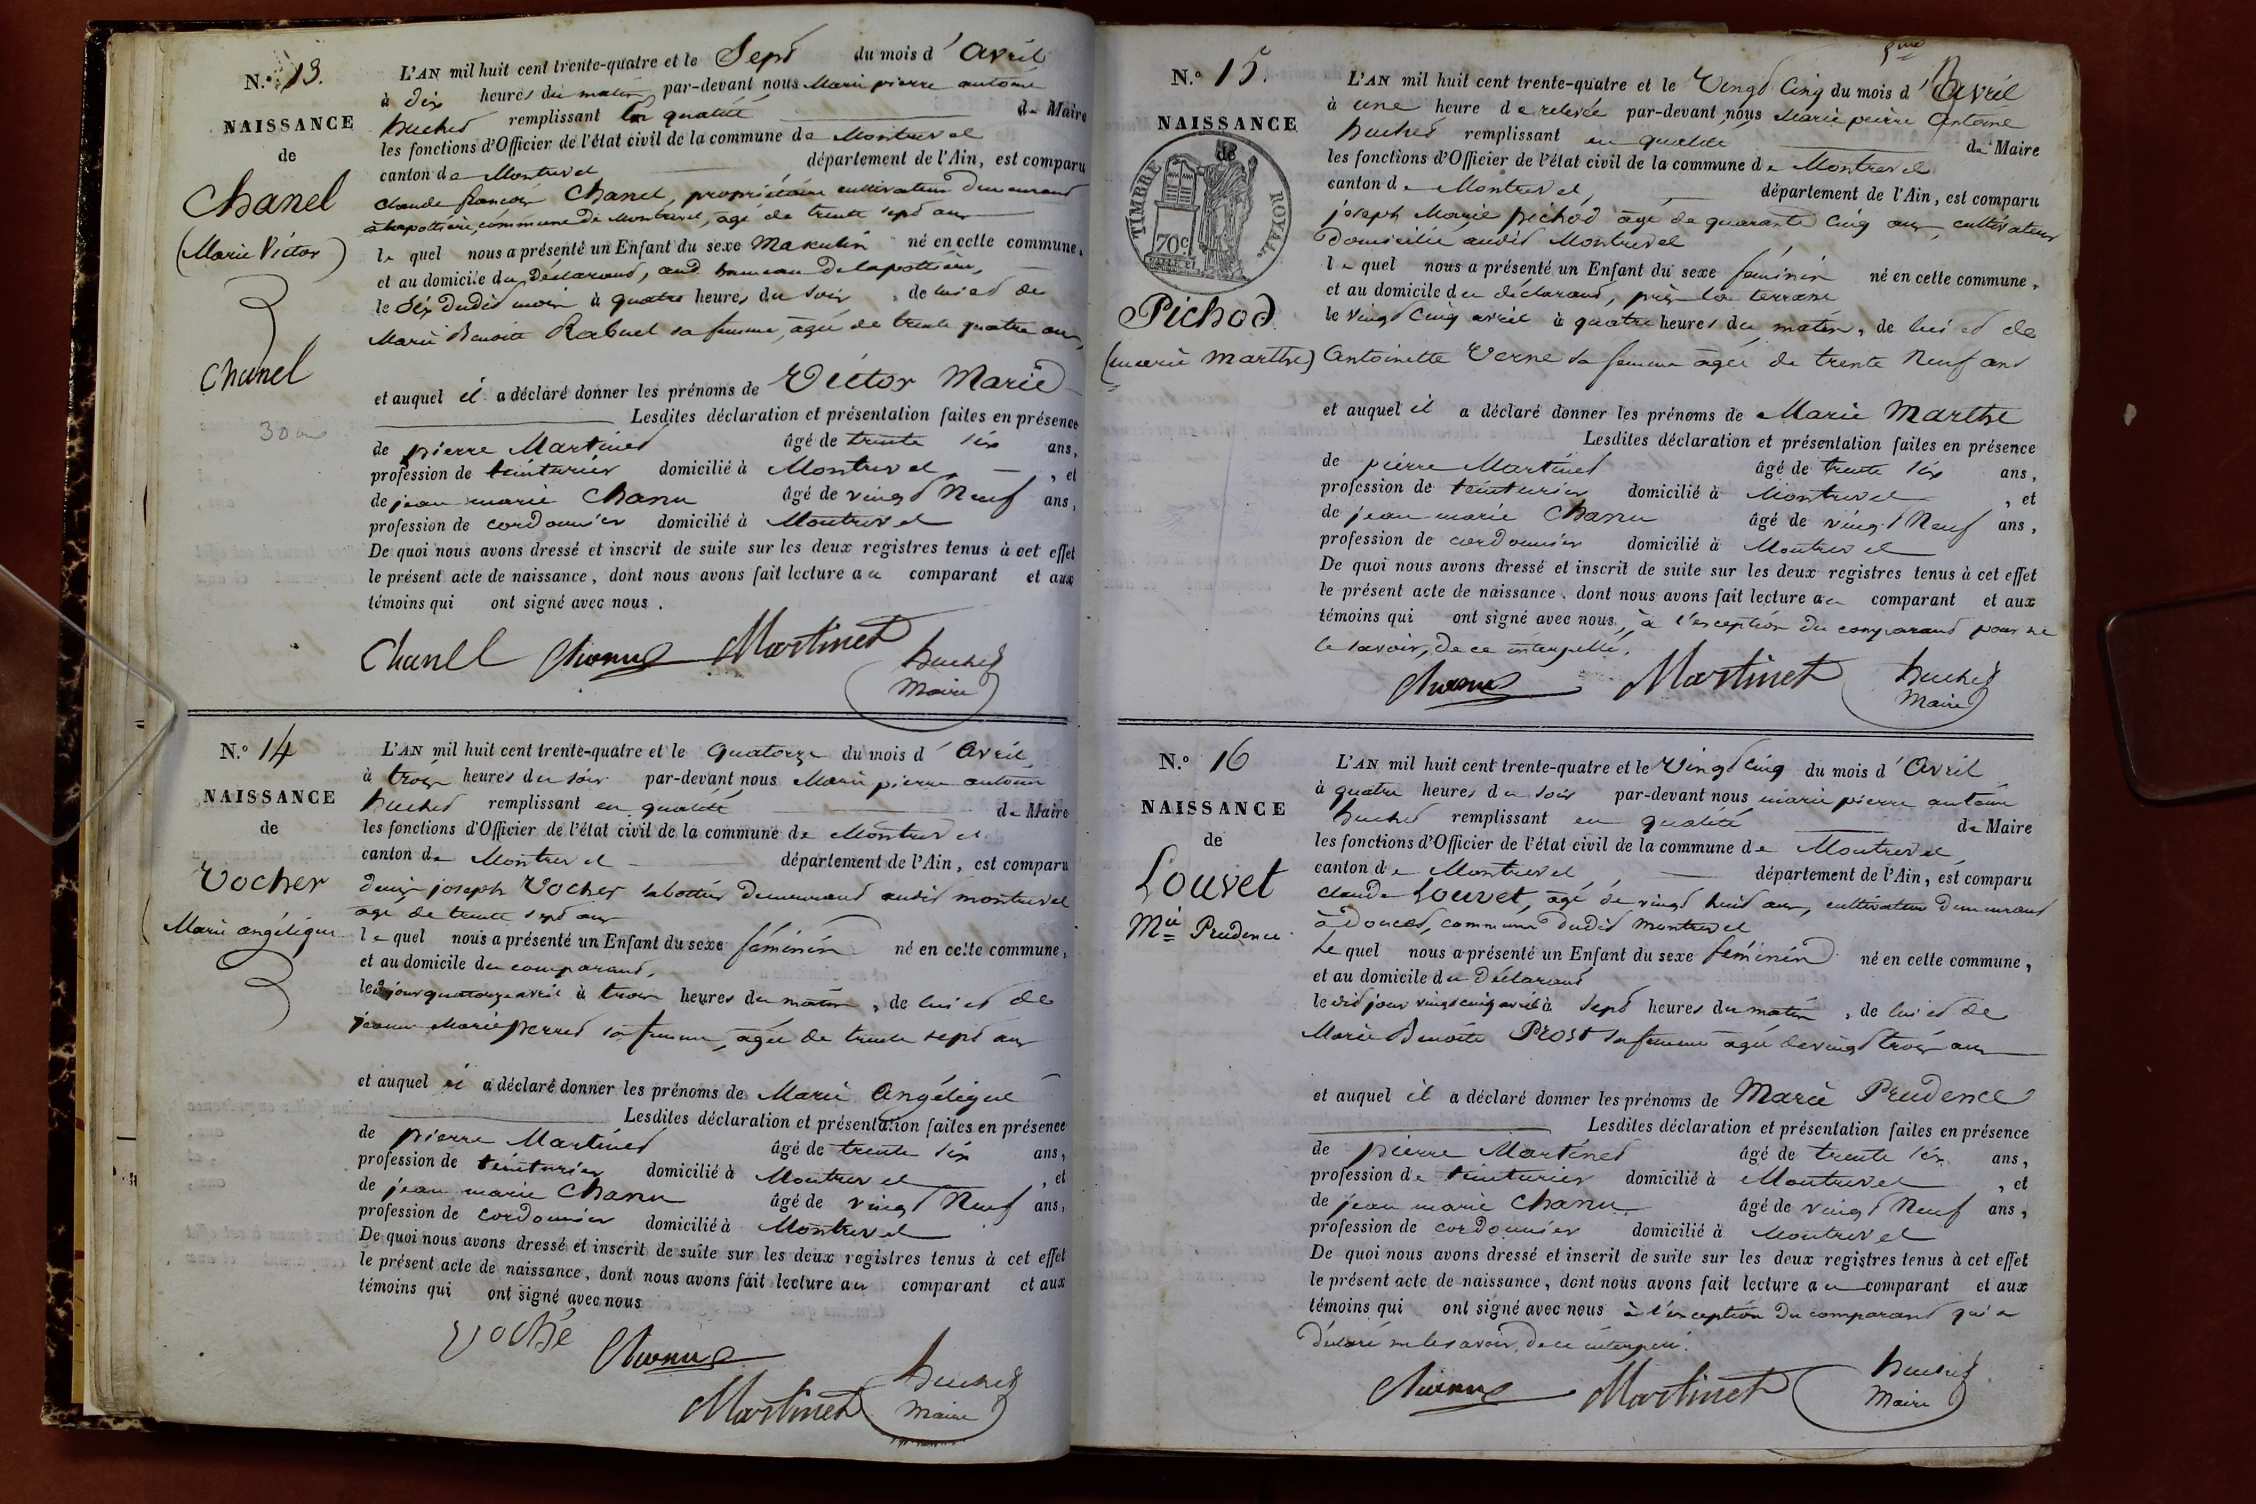 N.º 13.
NAISSANCE
de
Chanel
(Marie Victor)
Chanel
30 ans
L'AN mil huit cent trente-quatre et le Sept du mois d'avril
à dix heures du matin par-devant nous Marie pierre antoine
huchet remplissant en qualité de Maire
les fonctions d'Officier de l'état civil de la commune de Montrevel
canton de Montrevel département de l'Ain, est comparu
Claude françois Chanel, propriétaire cultivateur demeurant
à lapottiere, commune de Montrevel, âgé de trente sept ans
le quel nous a présenté un Enfant du sexe Masculin né en cette commune,
et au domicile du déclarant, aud hameau de lapottiere,
le Six dudit mois à quatre heures du soir, de lui et de
Marie Benoite Rabuel sa femme, âgée de trente quatre ans,
et auquel il a déclaré donner les prénoms de Victor Marie
Lesdites déclaration et présentation faites en présence
de pierre Martinet âgé de trente six ans,
profession de teinturier domicilié à Montrevel, et
de jean marie Chanu âgé de vingt Neuf ans,
profession de cordonnier domicilié à Montrevel
De quoi nous avons dressé et inscrit de suite sur les deux registres tenus à cet effet
le présent acte de naissance, dont nous avons fait lecture au comparant et aux
témoins qui ont signé avec nous.
Chanel Chanu Martinet huchet
Maire
N.º 14
NAISSANCE
de
Vocher
Marie angélique
L'AN mil huit cent trente-quatre et le quatorze du mois d'avril,
à trois heures du soir par-devant nous Marie pierre antoine
huchet remplissant en qualité de Maire
les fonctions d'Officier de l'état civil de la commune de Montrevel
canton de Montrevel département de l'Ain, est comparu
denis joseph Vocher sabotier demeurant audit montrevel
âgé de trente sept ans
le quel nous a présenté un Enfant du sexe féminin né en cette commune,
et au domicile du comparant,
le jour quatorze avril à trois heures du matin, de lui et de
jeanne Marie perret sa femme, âgée de trente sept ans
et auquel il a déclaré donner les prénoms de Marie Angélique
Lesdites déclaration et présentation faites en présence
de pierre Martinet âgé de trente six ans,
profession de teinturier domicilié à Montrevel, et
de jean marie Chanu âgé de vingt Neuf ans,
profession de cordonnier domicilié à Montrevel
De quoi nous avons dressé et inscrit de suite sur les deux registres tenus à cet effet
le présent acte de naissance, dont nous avons fait lecture au comparant et aux
témoins qui ont signé avec nous
Voché Chanu
Martinet huchet
Maire
5me
N.º 15.
NAISSANCE
de
TIMBRE ROYAL.
70c
Pichod
(marie marthe)
L'AN mil huit cent trente-quatre et le Vingt Cinq du mois d'Avril
à une heure de relevée par-devant nous Marie pierre Antoine
huchet remplissant en qualité de Maire
les fonctions d'Officier de l'état civil de la commune de Montrevel
canton de Montrevel, département de l'Ain, est comparu
joseph Marie pichod âgé de quarante Cinq ans, cultivateur
domicilié audit Montrevel
le quel nous a présenté un Enfant du sexe féminin né en cette commune,
et au domicile du déclarant, près la terrasse
le vingt Cinq avril à quatre heures du matin, de lui et de
Antoinette Verne sa femme âgée de trente Neuf ans
et auquel il a déclaré donner les prénoms de Marie Marthe
Lesdites déclaration et présentation faites en présence
de pierre Martinet âgé de trente six ans,
profession de teinturier domicilié à Montrevel, et
de jean marie Chanu âgé de vingt Neuf ans,
profession de cordonnier domicilié à Montrevel
De quoi nous avons dressé et inscrit de suite sur les deux registres tenus à cet effet
le présent acte de naissance, dont nous avons fait lecture au comparant et aux
témoins qui ont signé avec nous, à l'exception du comparant pour ne
le savoir, de ce interpellé.
Chanu Martinet huchet
Maire
N.º 16
NAISSANCE
de
Louvet
Mie Prudence.
L'AN mil huit cent trente-quatre et le Vingt Cinq du mois d'Avril
à quatre heures du soir par-devant nous marie pierre antoine
huchet remplissant en qualité de Maire
les fonctions d'Officier de l'état civil de la commune de Montrevel,
canton de Montrevel, département de l'Ain, est comparu
claude Louvet, âgé de vingt huit ans, cultivateur demeurant
à Doucet, commune dudit Montrevel
Le quel nous a présenté un Enfant du sexe féminin né en cette commune,
et au domicile du Déclarant
le dit jour vingt cinq avril à sept heures du matin, de lui et de
Marie Benoite Prost sa femme âgée de vingt trois ans
et auquel il a déclaré donner les prénoms de Marie Prudence
Lesdites déclaration et présentation faites en présence
de pierre Martinet âgé de trente six ans,
profession de teinturier domicilié à Montrevel, et
de jean marie Chanu âgé de vingt Neuf ans,
profession de cordonnier domicilié à Montrevel
De quoi nous avons dressé et inscrit de suite sur les deux registres tenus à cet effet
le présent acte de naissance, dont nous avons fait lecture au comparant et aux
témoins qui ont signé avec nous à l'exception du comparant qui a
déclaré ne le savoir, de ce interpellé.
Chanu Martinet huchet
Maire